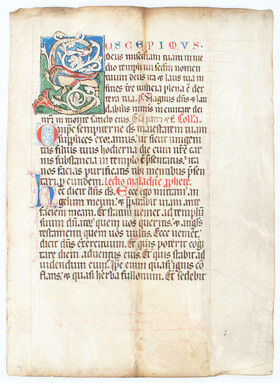 USCEPIMUS
deus misericordiam tuam in me
dio templi tui secundum nomen
tuum deus ita et laus tua in
fines terre iusticia plena est dex
tera tua. ps Magnus dominus et lau
dabilis nimis in ciuitate dei
nostri in monte sancto eius. Gloria patri et Collecta.
Omnipotens sempiterne deus maiestatem tuam
supplices exoramus. ut sicut unigeni
tus filius tuus hodierna die cum nostre car
nis substancia in templo est presentatus. ita
nos facias purificatis tibi mentibus presen
tari. per eundem. Lectio malachie prophete.
Hec dicit dominus deus. Ecce ego mittam an
gelum meum. et preparabit uiam ante
faciem meam. Et statim ueniet ad templum
suum dominator quem uos queritis. et angelus
testamenti quem uos uultis. Ecce uenit.
dicit dominus exercituum. Et quis poterit cogi
tare diem aduentus eius. Et quis stabit ad
uidendum eum. Ipse enim quasi ignis con
flans. et quasi herba fullonum. Et sedebit